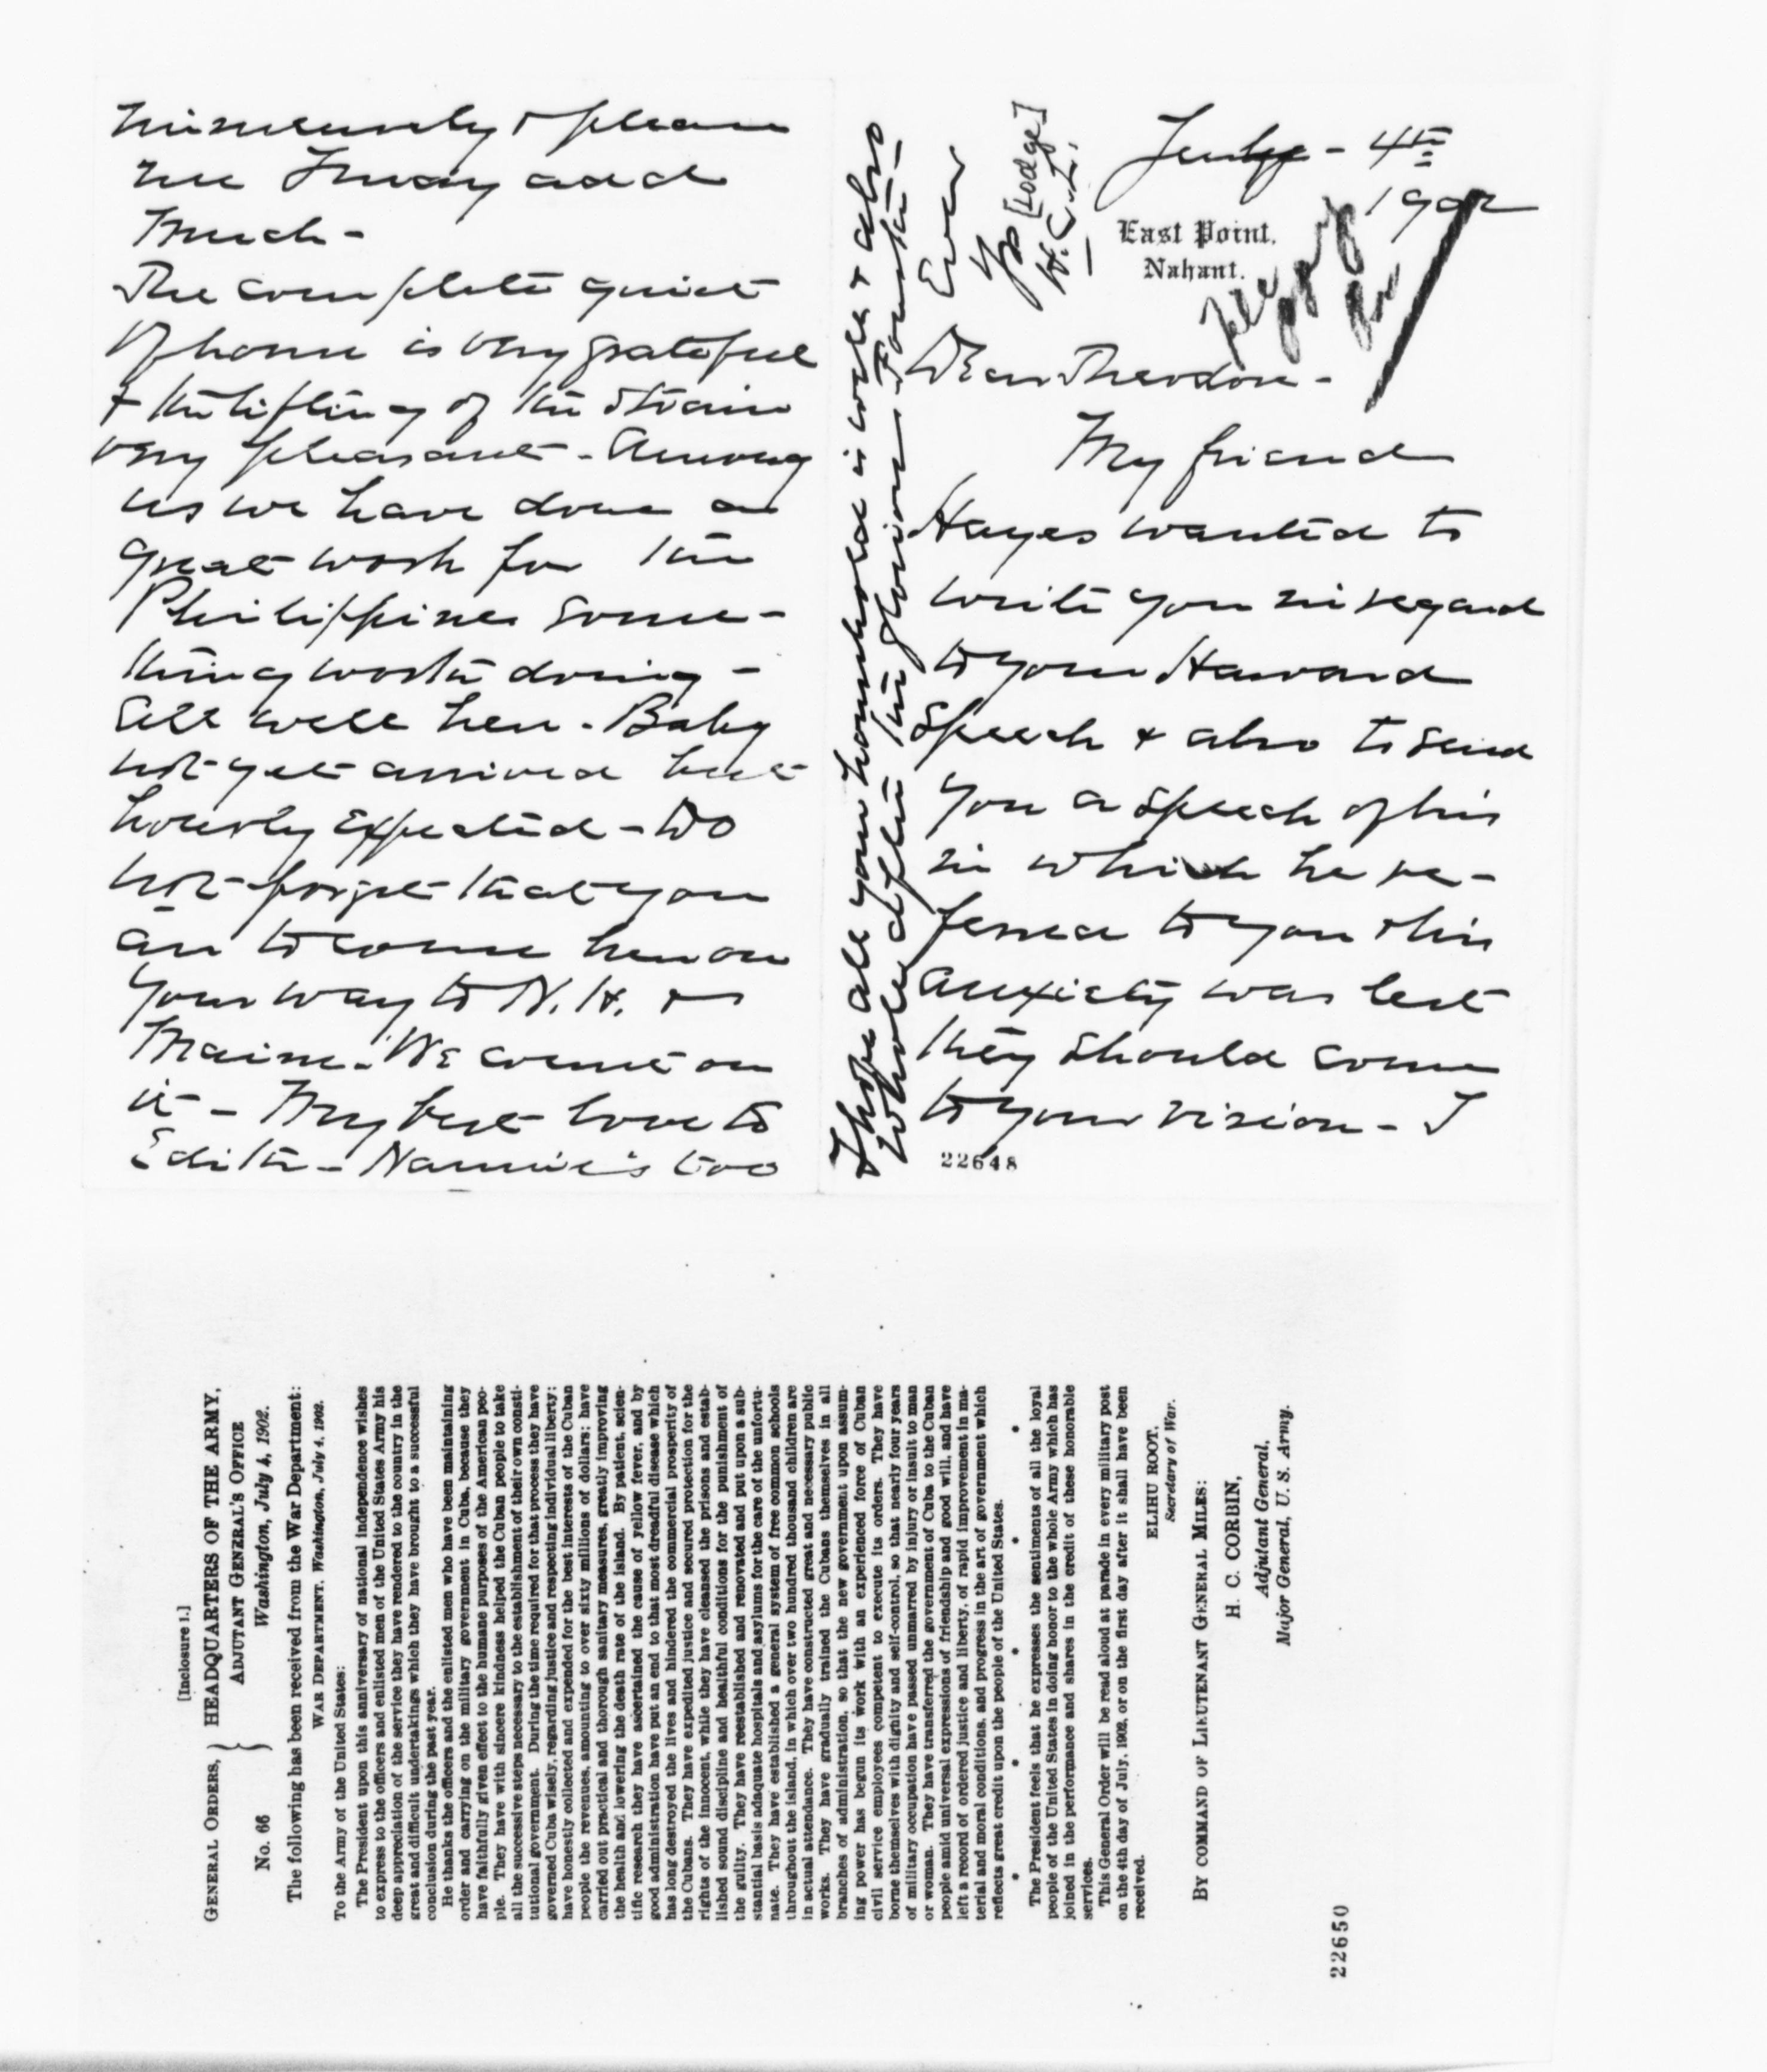 July - 4th
1902
East Point,
Nahant.
Dear Theodore -
My friend
Hayes wanted to
write you in regard
to your Harvard
Speech & also to send
you a speech of his
in which he re-
ferred to you & his
anxiety was lest
they should come
to your vision - I
22648
immensely & please
me I may add
much -
The complete quiet
of home is very grateful
& the lifting of the strain
very pleasant - Among
us we have done a
great work for the
Philippines some-
thing worth doing -
All well here - Baby
not yet arrived but
hourly expected - Do
not forget that you
are to come here on
your way to N. H. &
Maine. We count on
it - My best love to
Edith - Nannie's too
I hope all your household is well & also
whole after the glorious Fourth -
Ever
Yrs [Lodge]
H. C. L.
[Inclosure 1.]
GENERAL ORDERS, } HEADQUARTERS OF THE ARMY,
ADJUTANT GENERAL'S OFFICE
No. 66 } Washington, July 4, 1902.
The following has been received from the War Department:
WAR DEPARTMENT, Washington, July 4, 1902.
To the Army of the United States:
The President upon this anniversary of national independence wishes
to express to the officers and enlisted men of the United States Army his
deep appreciation of the service they have rendered to the country in the
great and difficult undertakings which they have brought to a successful
conclusion during the past year.
He thanks the officers and the enlisted men who have been maintaining
order and carrying on the military government in Cuba, because they
have faithfully given effect to the humane purposes of the American peo-
ple. They have with sincere kindness helped the Cuban people to take
all the successive steps necessary to the establishment of their own consti-
tutional government. During the time required for that process they have
governed Cuba wisely, regarding justice and respecting individual liberty;
have honestly collected and expended for the best interests of the Cuban
people the revenues, amounting to over sixty millions of dollars; have
carried out practical and thorough sanitary measures, greatly improving
the health and lowering the death rate of the island. By patient, scien-
tific research they have ascertained the cause of yellow fever, and by
good administration have put an end to that most dreadful disease which
has long destroyed the lives and hindered the commercial prosperity of
the Cubans. They have expedited justice and secured protection for the
rights of the innocent, while they have cleansed the prisons and estab-
lished sound discipline and healthful conditions for the punishment of
the guilty. They have reestablished and renovated and put upon a sub-
stantial basis adaquate hospitals and asylums for the care of the unfortu-
nate. They have established a general system of free common schools
throughout the island, in which over two hundred thousand children are
in actual attendance. They have constructed great and necessary public
works. They have gradually trained the Cubans themselves in all
branches of administration, so that the new government upon assum-
ing power has begun its work with an experienced force of Cuban
civil service employees competent to execute its orders. They have
borne themselves with dignity and self-control, so that nearly four years
of military occupation have passed unmarred by injury or insult to man
or woman. They have transferred the government of Cuba to the Cuban
people amid universal expressions of friendship and good will, and have
left a record of ordered justice and liberty, of rapid improvement in ma-
terial and moral conditions, and progress in the art of government which
reflects great credit upon the people of the United States.
* * * * *
The President feels that he expresses the sentiments of all the loyal
people of the United States in doing honor to the whole Army which has
joined in the performance and shares in the credit of these honorable
services.
This General Order will be read aloud at parade in every military post
on the 4th day of July, 1902, or on the first day after it shall have been
received.
ELIHU ROOT,
Secretary of War.
BY COMMAND OF LIEUTENANT GENERAL MILES:
H. C. CORBIN,
Adjutant General,
Major General, U. S. Army.
22650